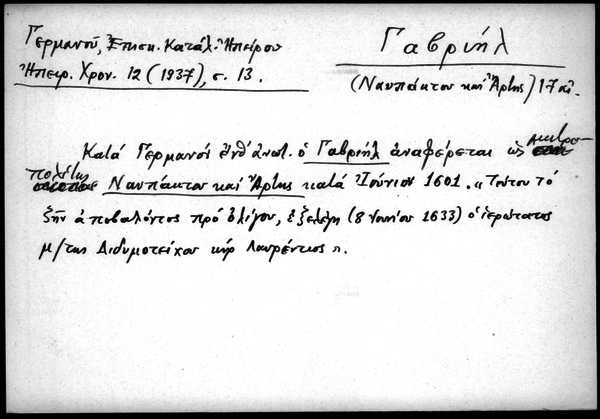 Γερμανοῦ, Ἐπισκ. Κατάλ. Ἠπείρου
Ἠπειρ. Χρον. 12 (1937), σ. 13.
Γαβριήλ
(Ναυπάκτου καὶ Ἄρτης) 17 αἰ.
Κατά Γερμανόν ἐνθ' ἀνωτ. ὁ Γαβριήλ ἀναφέρεται ὡς μητρο-
πολίτης Ναυπάκτου καὶ Ἄρτης κατά Ἰούνιον 1601. «Τούτου τό
ζῆν ἀποβαλόντος πρό ὀλίγου, ἐξελέγη (8 Ἰουνίου 1633) ὁ ἱερώτατος
μ/της Διδυμοτείχου κύρ Λαυρέντιος».